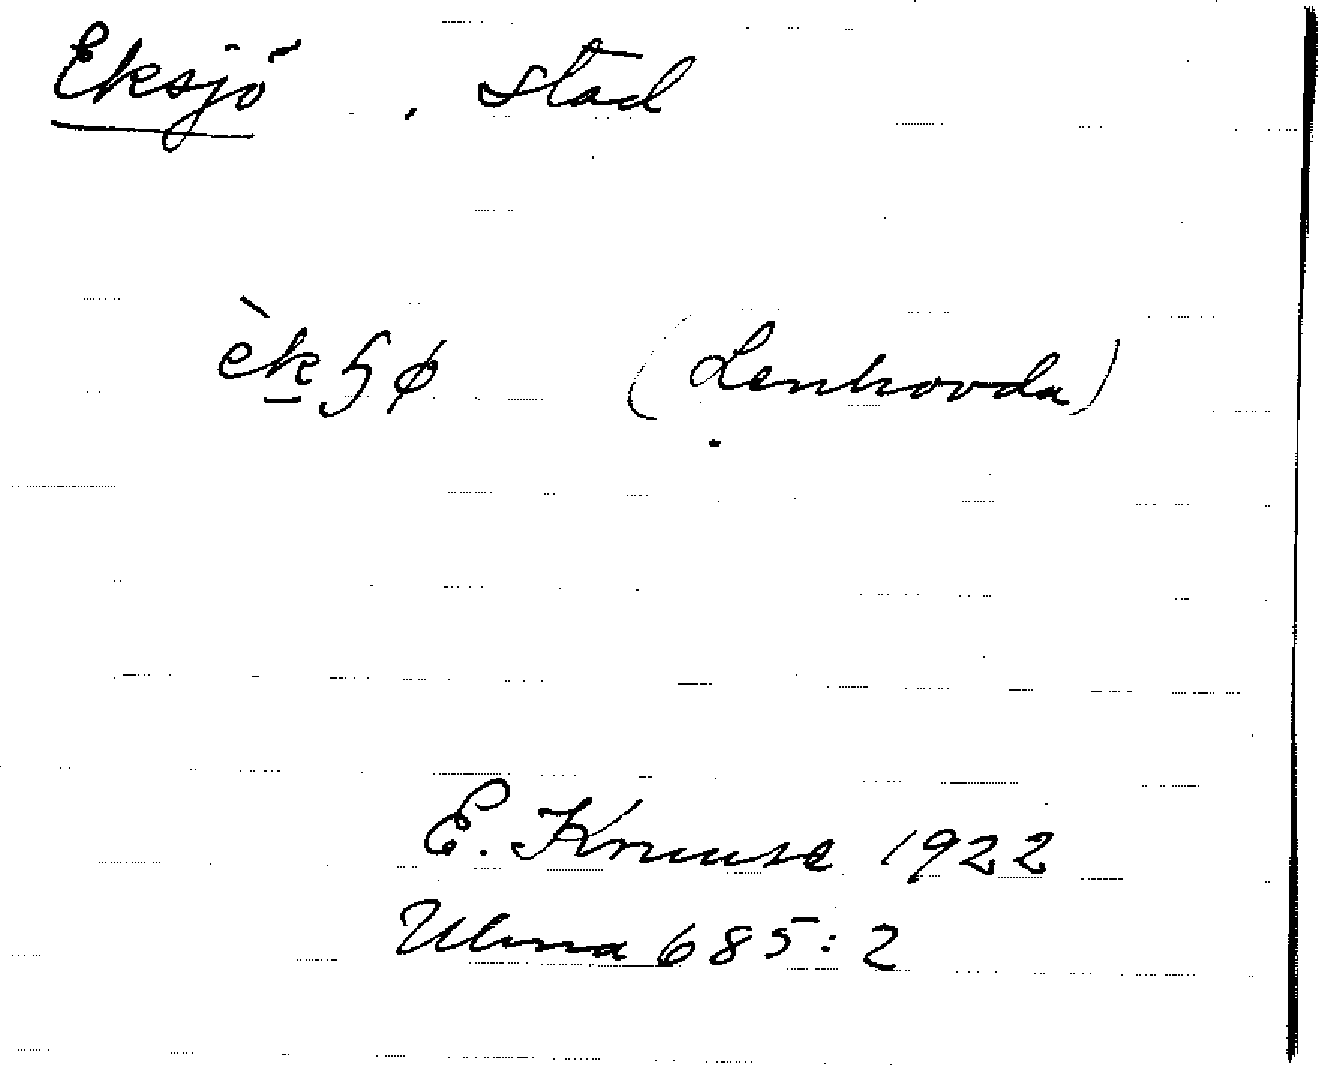 Eksjö, stad
èk̲ɧø (Lenhovda)
E. Kruuse 1922
Ulma 685:2